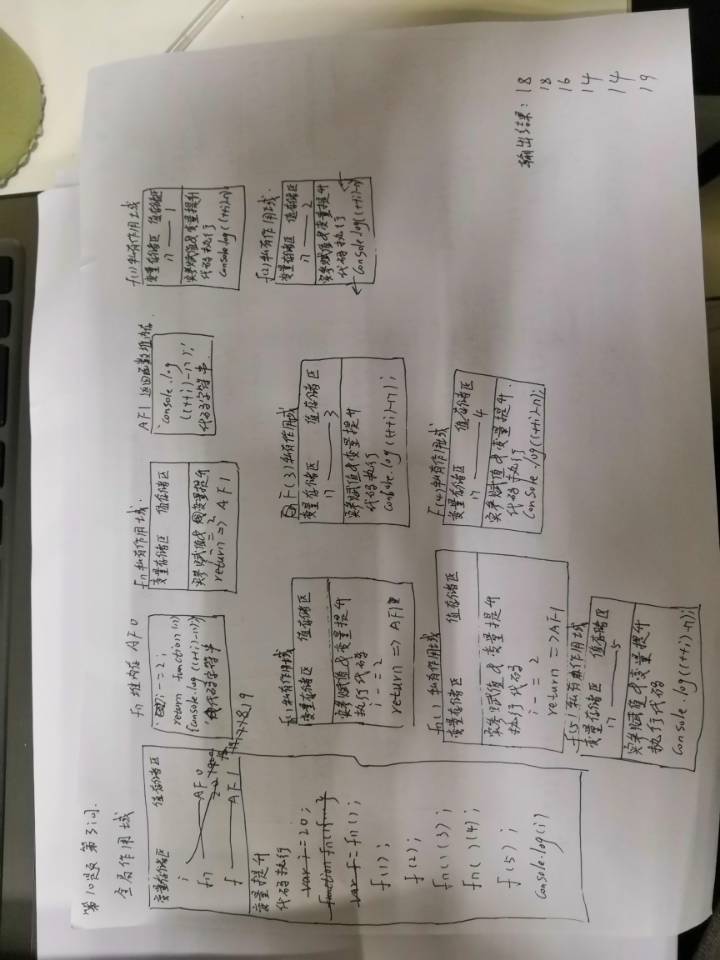 第10题 第3问.
全局作用域
变量存储区 值存储区
i
fn —— AF0
f —— AF1
变量提升
代码执行
var i = 20;
function fn(){...}
var f = fn();
f(1);
f(2);
fn()(3);
fn()(4);
f(5);
console.log(i)
fn 堆内存 AF0
i -= 2;
return function(n)
{console.log((++i)-n)}
代码字符串
fn 私有作用域.
变量存储区 值存储区
形参赋值或变量提升
i -= 2
return => AF1
AF1 返回函数堆内存
'console.log
((++i)-n);'
代码字符串
f(1)私有作用域
变量存储区 值存储区
n —— 1
形参赋值或变量提升
代码执行
console.log((++i)-n);
f(2)私有作用域.
变量存储区 值存储区
n —— 2
形参赋值或变量提升
代码执行
console.log((++i)-n)
私有作用域
变量存储区 值存储区
形参赋值或变量提升
执行代码
i -= 2
return => AF1
F(3)私有作用域
变量存储区 值存储区
n —— 3
形参赋值或变量提升
代码执行
console.log((++i)-n);
fn()私有作用域
变量存储区 值存储区
形参赋值或变量提升
执行代码
i -= 2
return => AF1
F(4)私有作用域
变量存储区 值存储区
n —— 4
形参赋值或变量提升.
代码执行
console.log((++i)-n);
f(5)私有作用域
变量存储区 值存储区
n —— 5
形参赋值或变量提升
执行代码
console.log((++i)-n);
输出结果: 18
18
16
14
14
19